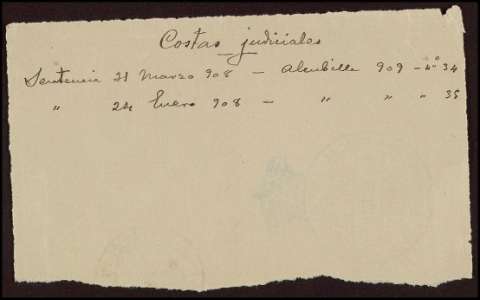 Costas judiciales
Sentencia 21 Marzo 908 — Alcubilla 909 — nº 34
" 24 Enero 908 — " " " 35